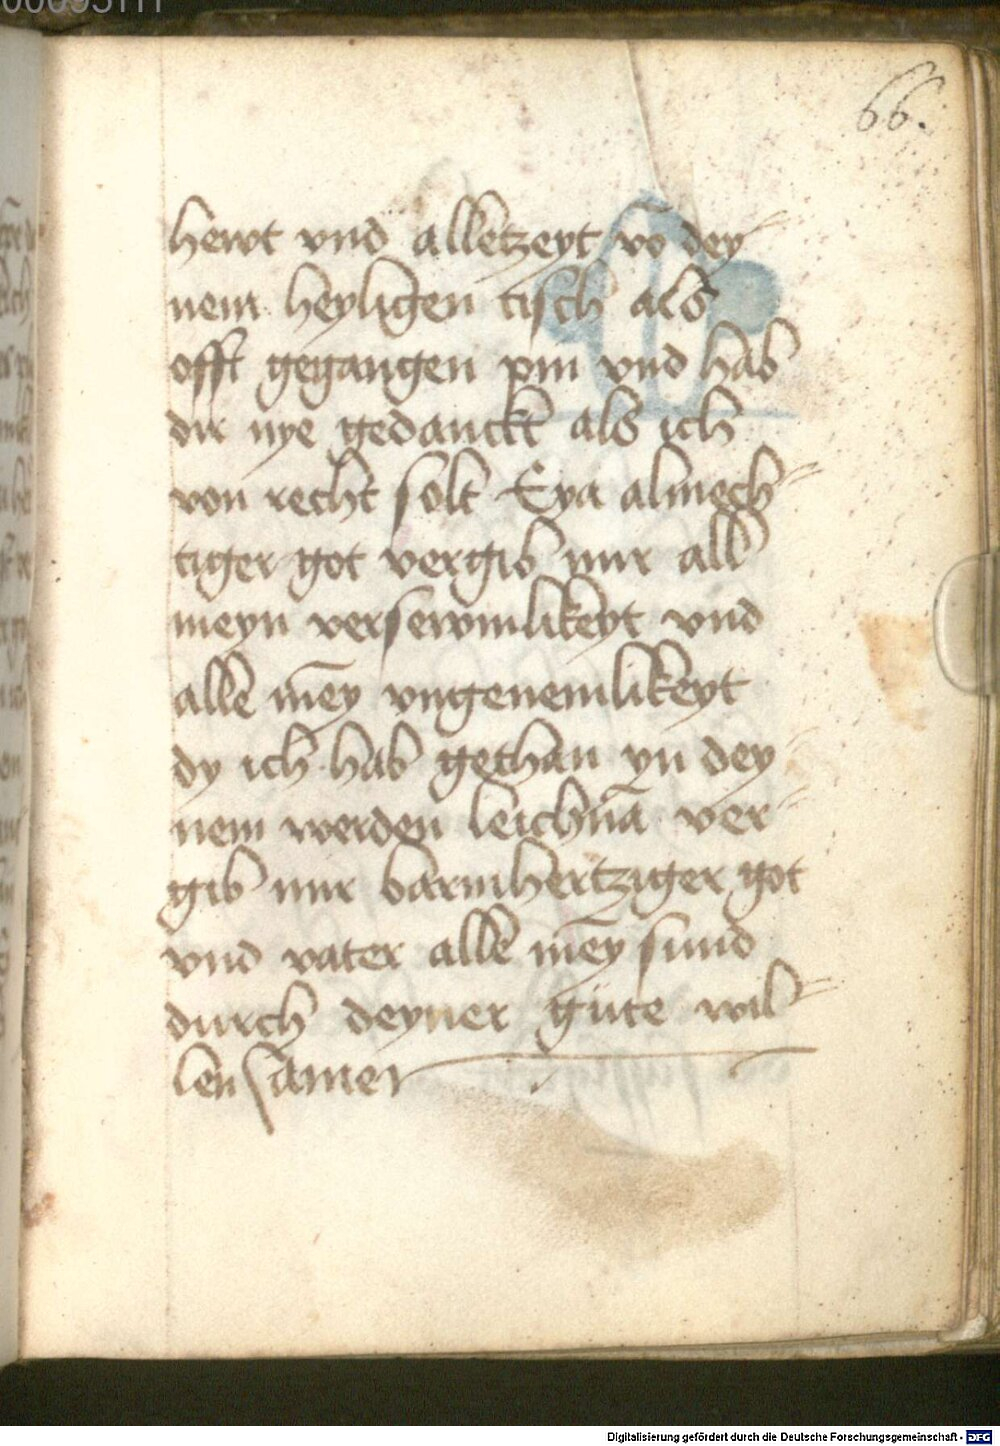 66.
hewt vnd alletzeyt vō dey
nem heyligen tisch als
offt gegangen pin vnd hab
dir nye gedanckt als ich
von recht solt Eya almech
tiger got vergib mir all
meyn versewmlikeyt vnd
alle mēy vngenemlikeyt
dy ich hab gethan yn dey
nem werden leichnā ver
gib mir barmhertziger got
vnd vater alle mēy sund
durch deyner güte wil
len amen
Digitalisierung gefördert durch die Deutsche Forschungsgemeinschaft - DFG